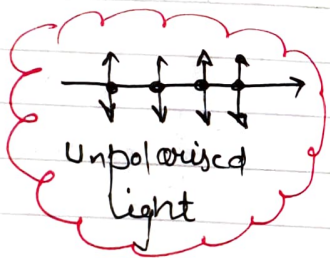 Unpolarised
light